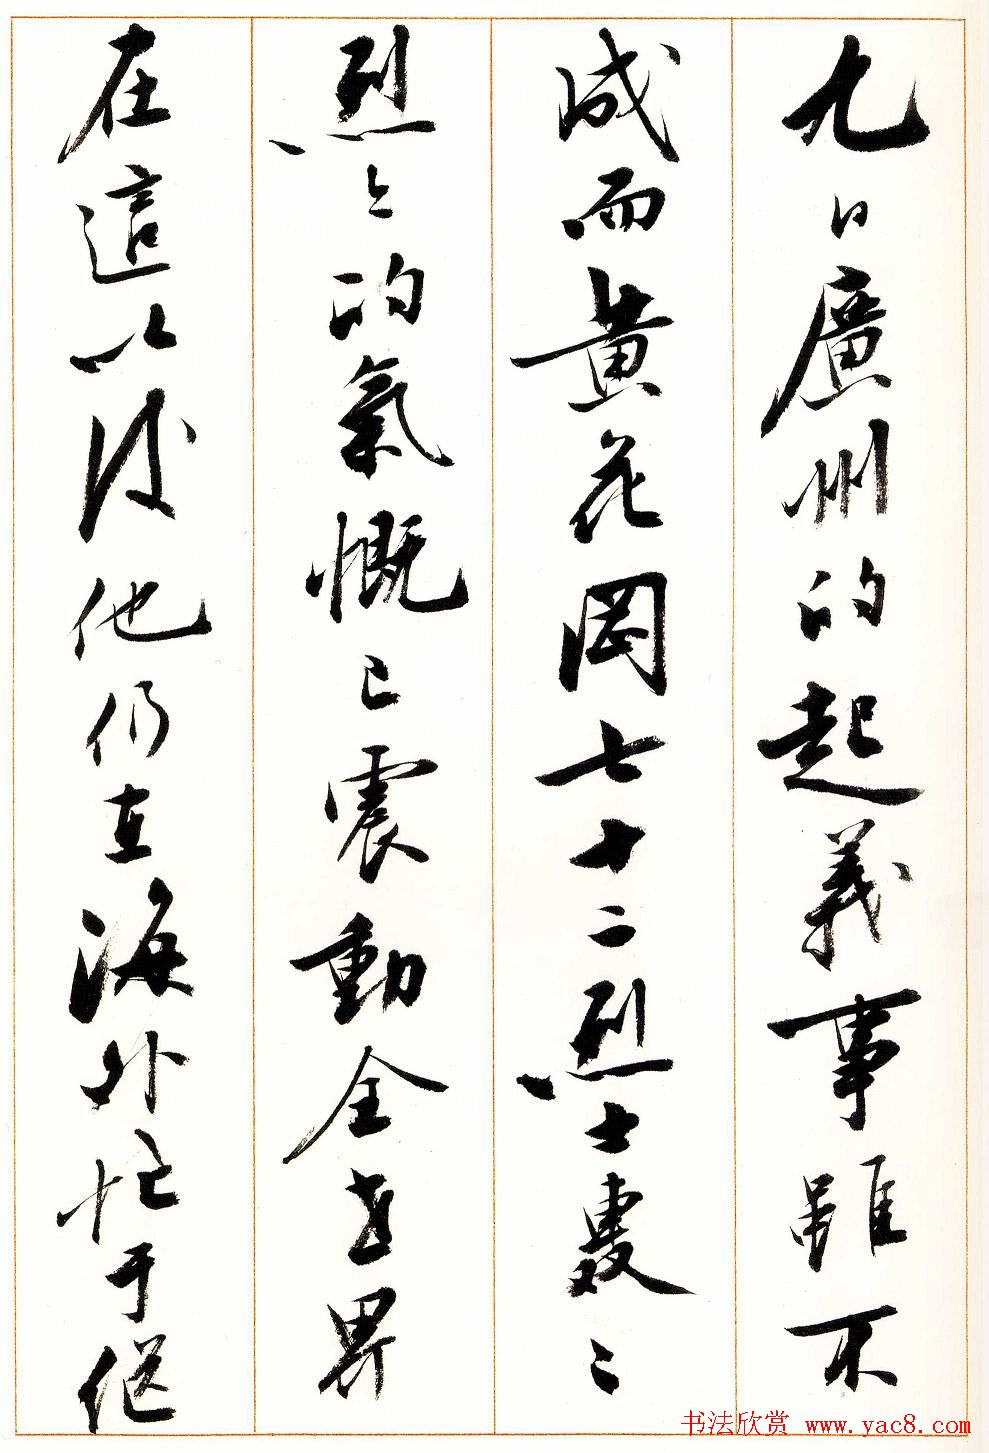 九日廣州的起義事雖不
成而黃花岡七十二烈士轟々
烈々的氣慨已震動全世界
在這以後他仍在海外忙于從
书法欣赏 www.yac8.com